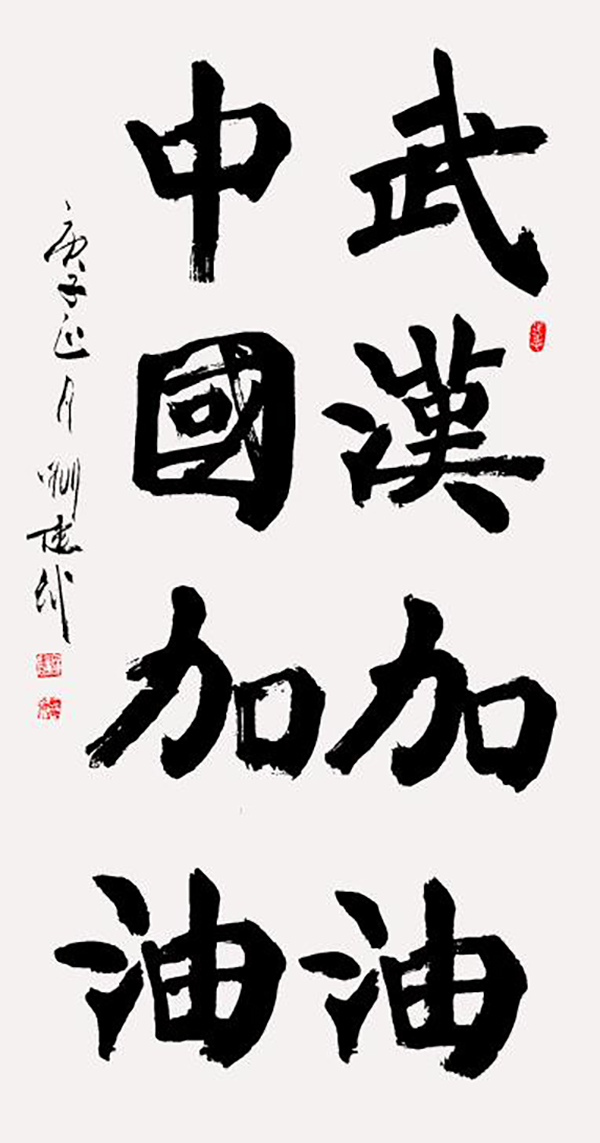 武漢加油
中國加油
庚子正月